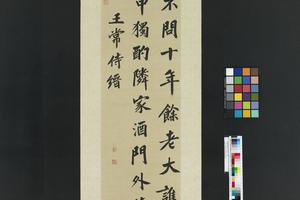 不問十年餘老大誰
中獨酌隣家酒門外
王常侍繒